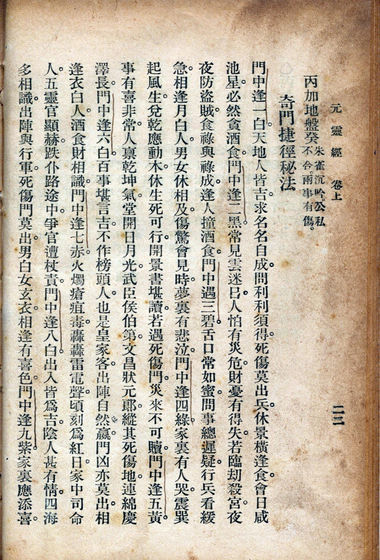 元靈經 卷上
丙加地盤癸 朱雀沉吟公私
不合兩事有傷
奇門捷徑秘法
門中逢一白天地人皆吉求名名自成問利利須得死傷莫出兵休景橫逢食會日咸
池星必然貪酒食門中逢二黑常見雲迷㠯人怕有災危財憂有得失若臨劫殺宮夜
夜防盜賊食祿與祿成逢人撞酒食門中遇三碧舌口常如蜜問事總遲疑行兵看緩
急相逢月白人男女休相及傷驚會見時夢裏有悲泣門中逢四綠家裏有人哭震巽
起風生兌乾應動木休生死可行開景書堪讀若遇死傷門災來不可贖門中逢五黃
事有喜非常人稟乾坤氣堂開日月光武臣侯伯第文昌狀元郎縱其死傷地連綿慶
澤長門中逢六白百事堪言吉不作榜頭人也是皇家客出陣自然贏門凶亦莫出相
逢衣白人酒食財相識門中逢七赤火燭瘡疽毒轟轟雷電聲頃刻爲紅日家中司命
人五靈官顯赫跌仆路途中爭官遭杖責門中逢八白出入皆爲吉陰人甚有情四海
多相識出陣與行軍死傷門莫出男白女玄衣相逢有喜色門中逢九紫家裏應添喜
二二